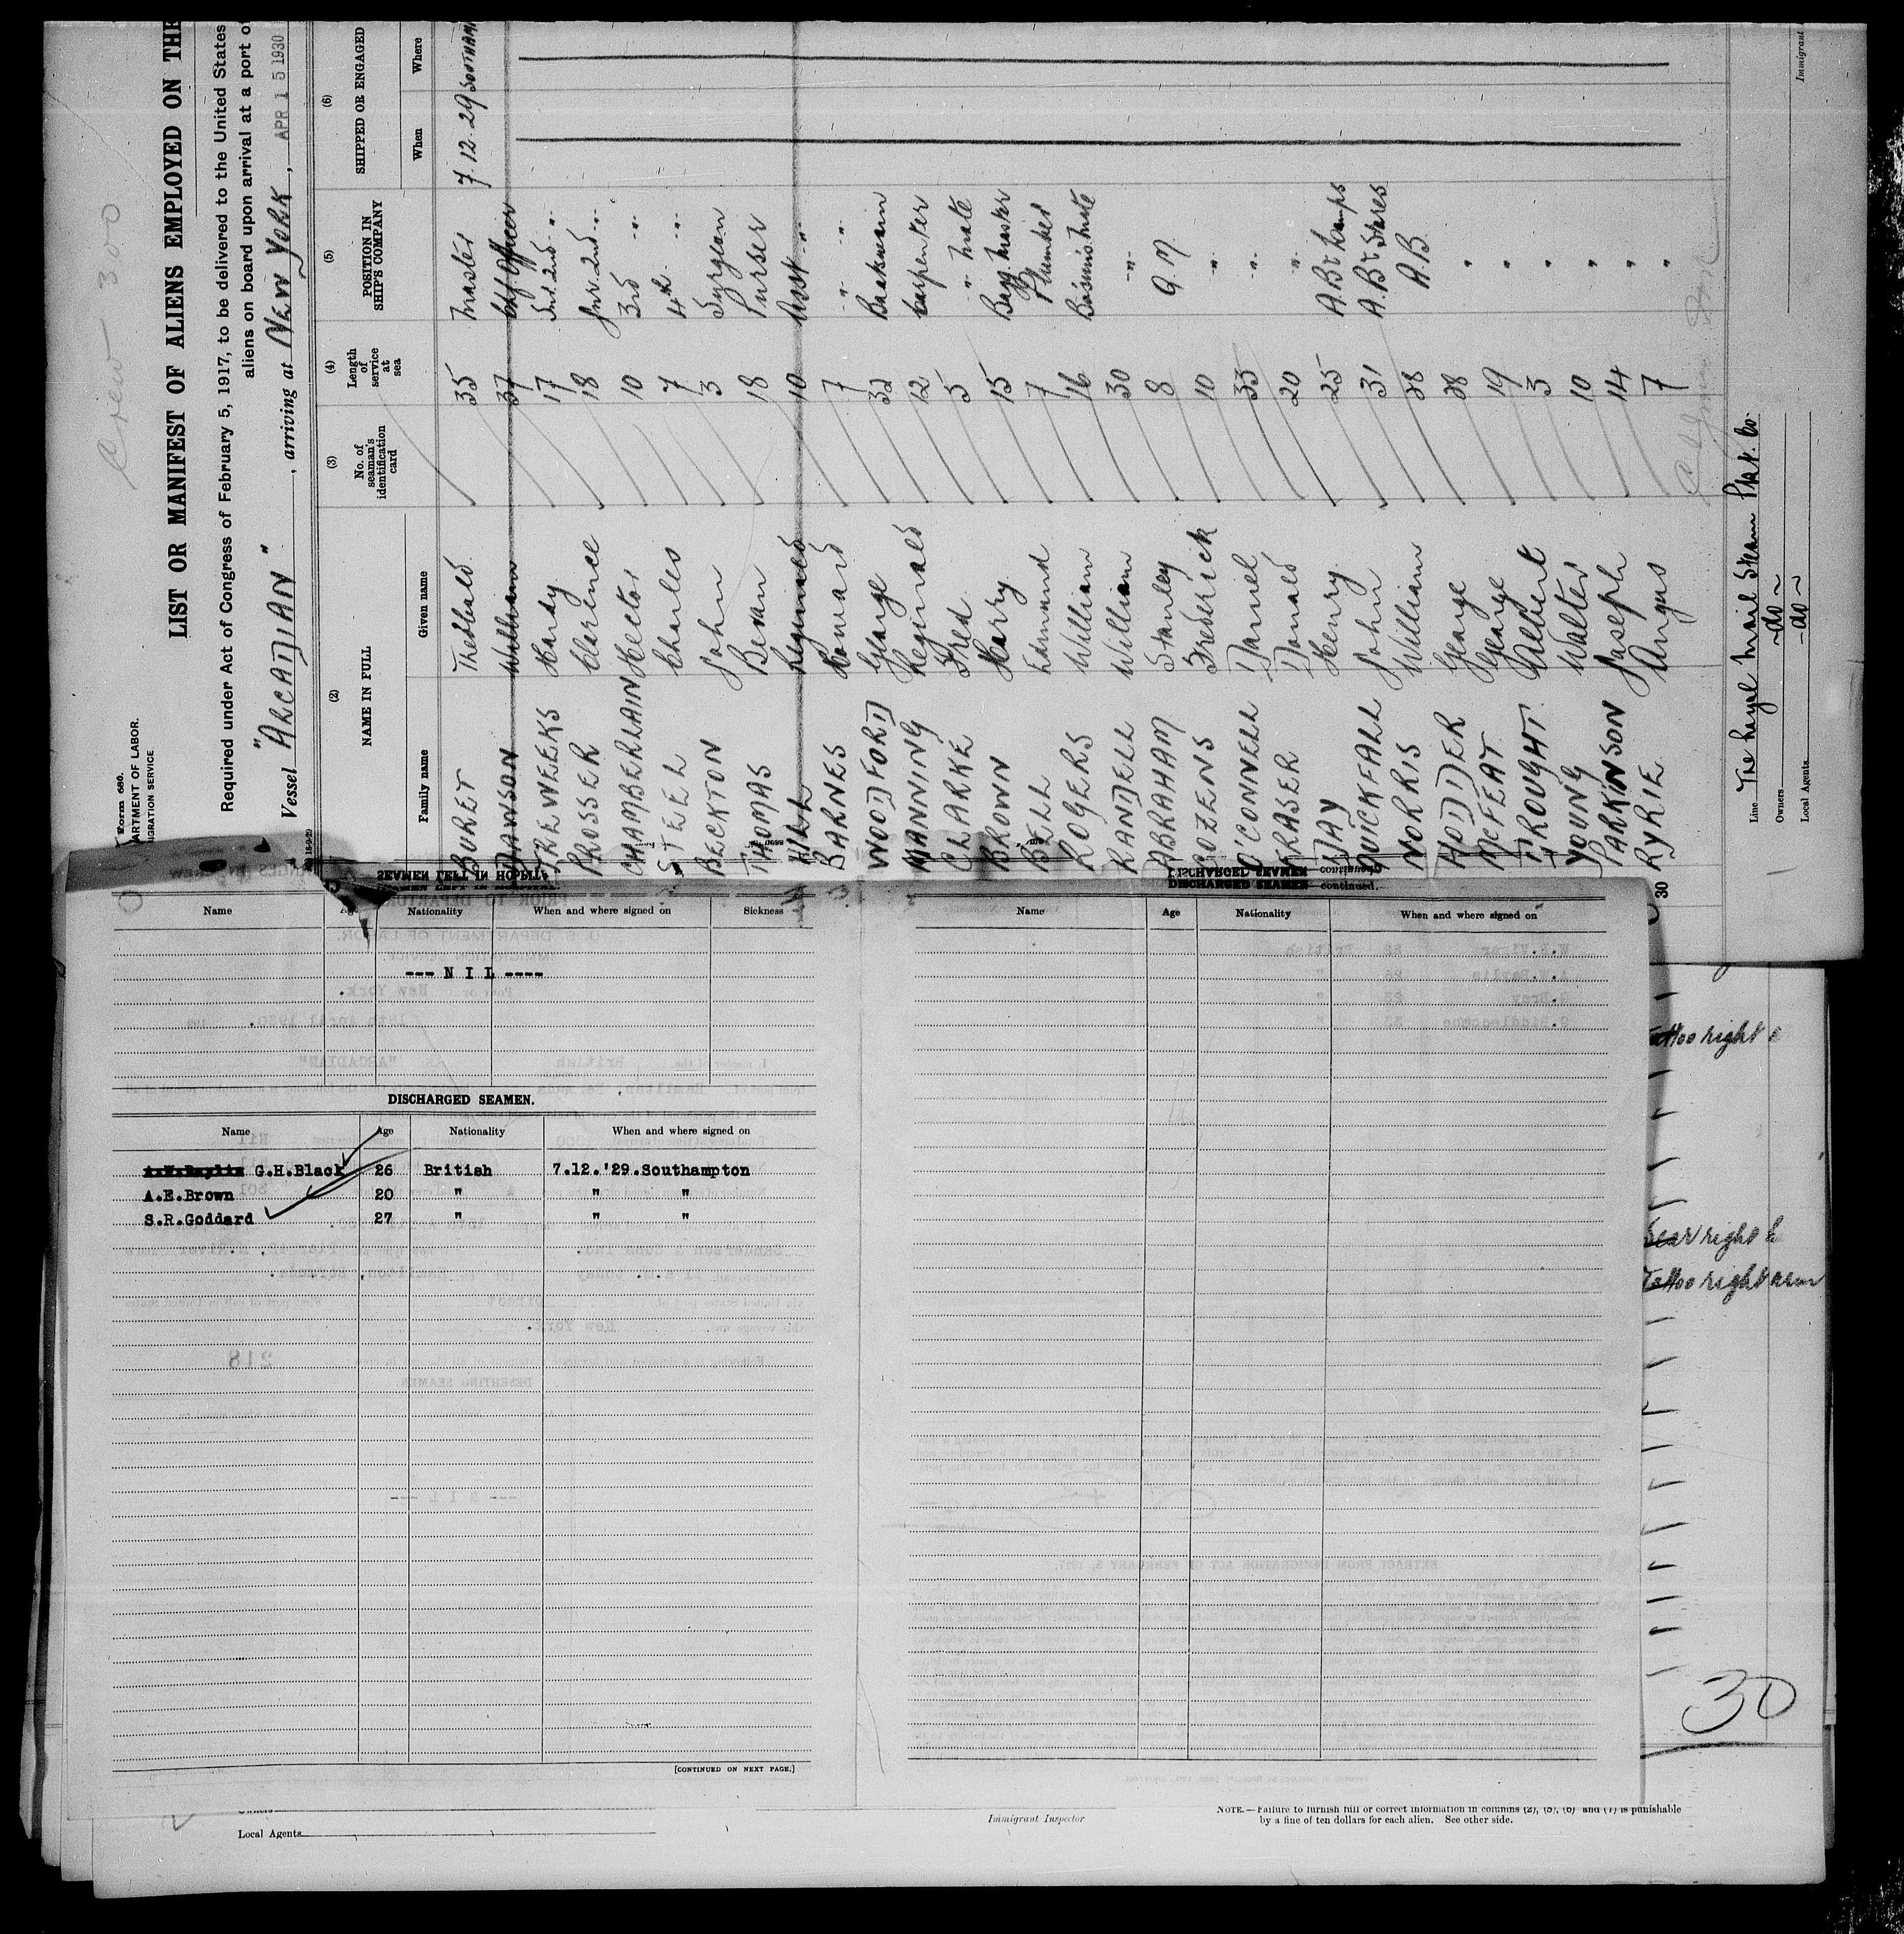 Crew 300
Form 680.
ARTMENT OF LABOR.
IGRATION SERVICE
LIST OR MANIFEST OF ALIENS EMPLOYED ON THE
Required under Act of Congress of February 5, 1917, to be delivered to the United States
aliens on board upon arrival at a port of
Vessel "ARCADIAN", arriving at NEW YORK, APR 15 1930
(2) (3) (4) (5) (6)
NAME IN FULL No. of seaman's identification card Length of service at sea POSITION IN SHIP'S COMPANY SHIPPED OR ENGAGED
Family name Given name When Where
BURET Theobald 35 Master 7.12.29 SOUTHAM
DAWSON William 37 Chf Officer
TREWEEKS Hardy 17 Snr 2nd "
PROSSER Clarence 18 Jnr. 2nd "
CHAMBERLAIN Hector 10 3rd "
STEEL Charles 7 4th "
BECKTON John 3 Surgeon
THOMAS Bevan 18 Purser
HILL Reginald 10 Asst "
BARNES Howard 7 " "
WOODFORD George 32 Boatswain
MANNING Reginald 12 Carpenter
CLARKE Fred 5 " Mate
BROWN Harry 15 Bagg Master
BELL Edmund 7 Plumber
ROGERS William 16 Bosuns Mate
RANDELL William 30 "
ABRAHAM Stanley 8 Q.M.
COZENS Frederick 10 "
O'CONNELL Daniel 35 "
FRASER Donald 20 "
DAY Henry 25 A.B & Lamps
QUICKFALL John 31 A.B & Stores
NORRIS William 28 A.B.
HODDER George 28 "
McFEAT George 19 "
DROUGHT Albert 3 "
YOUNG Walter 10 "
PARKINSON Joseph 14 "
30 RYRIE Angus 7 "
Line The Royal Mail Steam Pkt. Co.
Owners -do-
Local Agents -do-
Immigrant
SEAMEN LEFT IN HOSPITAL
Name Age Nationality When and where signed on Sickness
--- N I L ----
DISCHARGED SEAMEN.
Name Age Nationality When and where signed on
G.H.Black 26 British 7.12.'29.Southampton
A.E.Brown 20 " " "
S.R.Goddard 27 " " "
[CONTINUED ON NEXT PAGE.]
DISCHARGED SEAMEN—continued.
Name Age Nationality When and where signed on
Tattoo right
Scar right
Tattoo right arm
30
Owners
Local Agents
Immigrant Inspector
NOTE.—Failure to furnish full or correct information in columns (2), (5), (6) and (7) is punishable
by a fine of ten dollars for each alien. See other side.